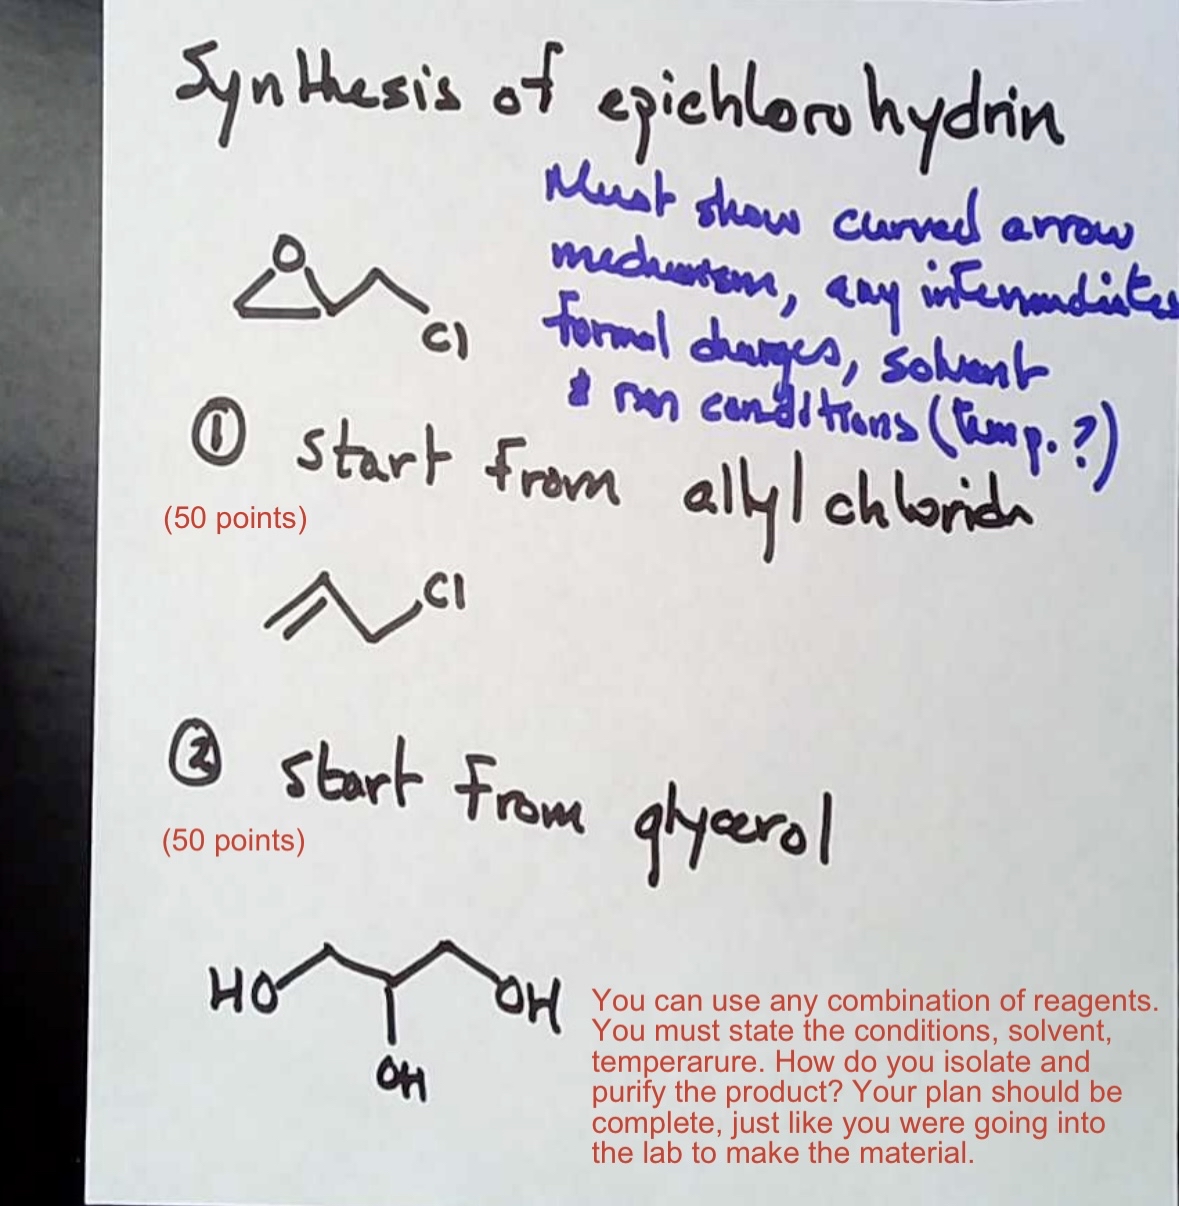 Synthesis of epichlorohydrin
Must show curved arrow
mechanism, any intermediates
formal charges, solvent
& rxn conditions (temp.?)
O
Cl
① Start from allyl chloride
(50 points)
Cl
② Start from glycerol
(50 points)
HO
OH
OH
You can use any combination of reagents.
You must state the conditions, solvent,
temperarure. How do you isolate and
purify the product? Your plan should be
complete, just like you were going into
the lab to make the material.